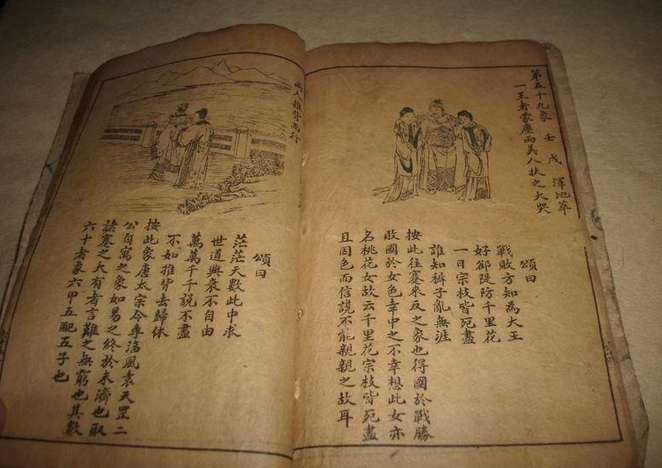 第五十九象 壬戌 澤地萃
一王者蒙塵而美人扶之大哭
頌曰
戰敗方知為大王
好卻隄防千里花
一日宗枝皆死盡
誰知裤子亂無涯
按此往蹇來反之象也得國於戰勝
敗國於女色幸中之不幸想此女亦
名桃花女故云千里花宗枝皆死盡
且因色而信說不能親親之故耳
人推背而行
頌曰
茫茫天數此中求
世道興衰不自由
萬萬千千說不盡
不如推背去歸休
按此象唐太宗令李淳風袁天罡二
公自寓之象如易之終於未濟也取
諸蹇之大有者言難之無窮也其數
六十者象六甲五配五子也